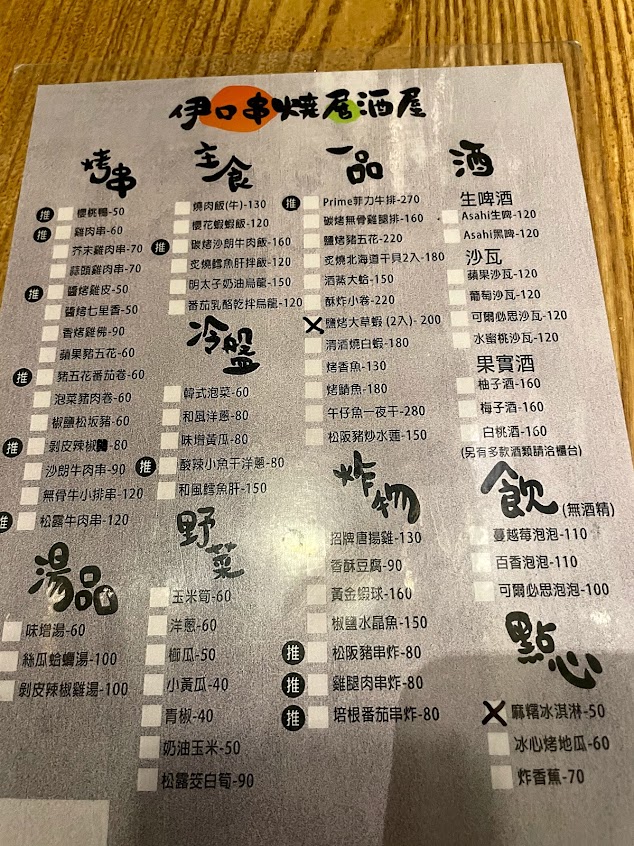 伊口串燒居酒屋
烤串
推 櫻桃鴨-50
推 雞肉串-60
芥末雞肉串-70
蒜頭雞肉串-70
推 醬烤雞皮-50
醬烤七里香-50
香烤雞佛-90
蘋果豬五花-60
推 豬五花番茄卷-60
泡菜豬肉卷-60
椒鹽松坂豬-60
推 剝皮辣椒-80
沙朗牛肉串-90
無骨牛小排串-120
推 松露牛肉串-120
湯品
味增湯-60
絲瓜蛤蠣湯-100
剝皮辣椒雞湯-100
主食
燒肉飯(牛)-130
櫻花蝦蝦飯-120
推 碳烤沙朗牛肉飯-160
炙燒鱈魚肝拌飯-120
明太子奶油烏龍-150
番茄乳酪乾拌烏龍-120
冷盤
韓式泡菜-60
和風洋蔥-80
味增黃瓜-80
推 酸辣小魚干洋蔥-80
和風鱈魚肝-150
野菜
玉米筍-60
洋蔥-60
櫛瓜-50
小黃瓜-40
青椒-40
奶油玉米-50
松露筊白筍-90
一品
推 Prime菲力牛排-270
碳烤無骨雞腿排-160
鹽烤豬五花-220
炙燒北海道干貝2入-180
酒蒸大蛤-150
酥炸小卷-220
鹽烤大草蝦(2入)-200
清酒燒白蝦-180
烤香魚-130
烤鯖魚-180
午仔魚一夜干-280
松阪豬炒水蓮-150
炸物
招牌唐揚雞-130
香酥豆腐-90
黃金蝦球-160
椒鹽水晶魚-150
推 松阪豬串炸-80
推 雞腿肉串炸-80
推 培根番茄串炸-80
酒
生啤酒
Asahi生啤-120
Asahi黑啤-120
沙瓦
蘋果沙瓦-120
葡萄沙瓦-120
可爾必思沙瓦-120
水蜜桃沙瓦-120
果實酒
柚子酒-160
梅子酒-160
白桃酒-160
(另有多款酒類請洽櫃台)
飲(無酒精)
蔓越莓泡泡-110
百香泡泡-110
可爾必思泡泡-100
點心
麻糬冰淇淋-50
冰心烤地瓜-60
炸香蕉-70